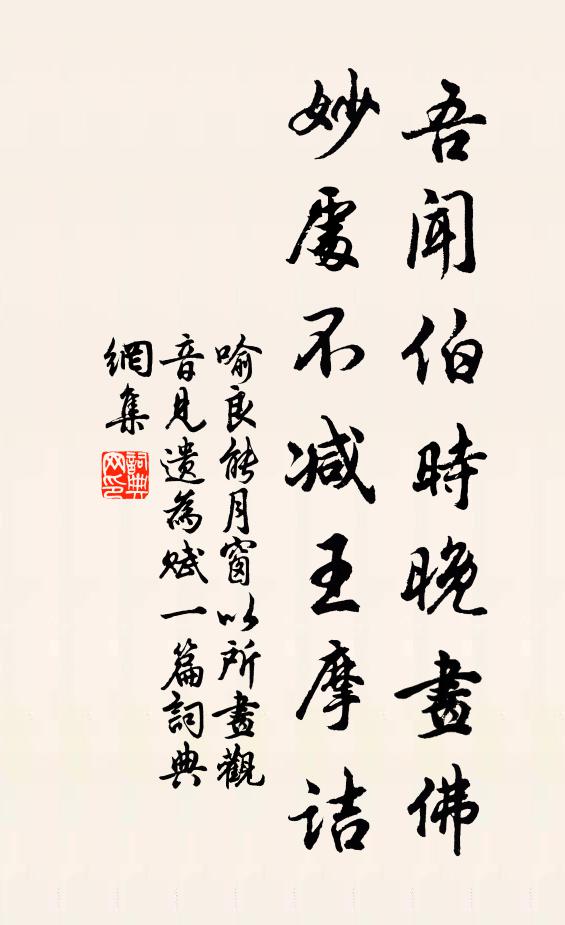 吾聞伯時晚畫佛
妙處不減王摩詰
喻良能月窗以所畫觀
音見遺為赋一篇詞典
網集
詞典
网印